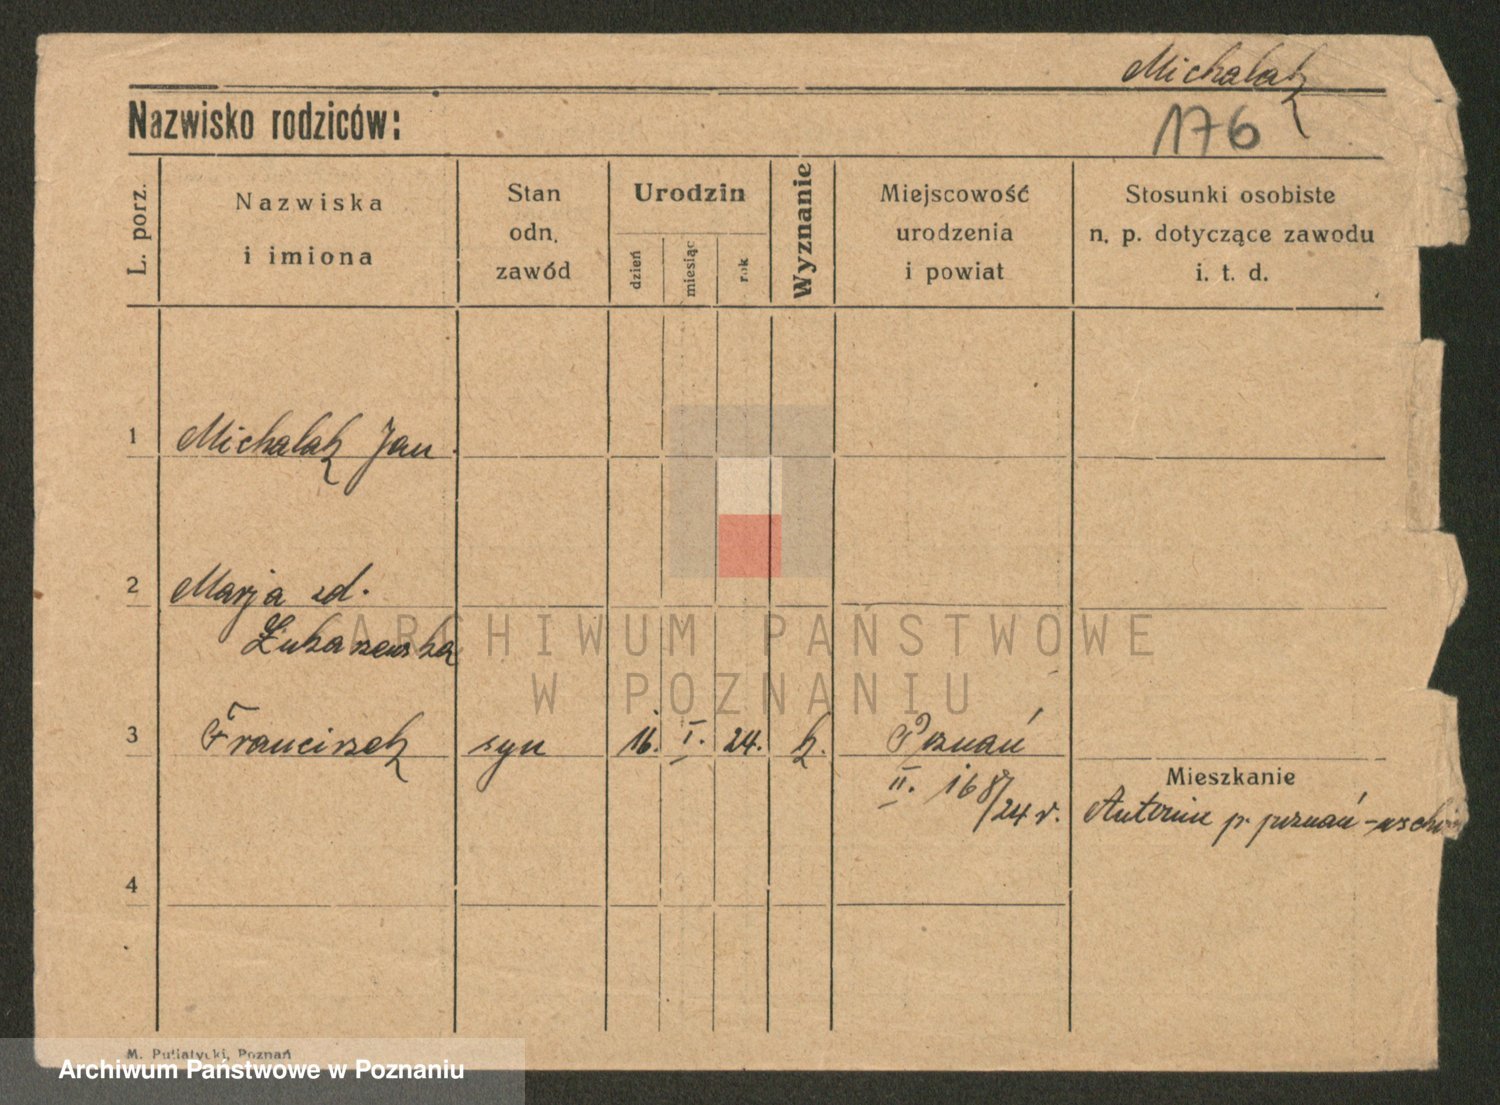 Michalak
176
Nazwisko rodziców:
L. porz.
Nazwiska
i imiona
Stan
odn.
zawód
Urodzin
dzień
miesiąc
rok
Wyznanie
Miejscowość
urodzenia
i powiat
Stosunki osobiste
n. p. dotyczące zawodu
i. t. d.
1 Michalak Jan
2 Marja zd.
Łukaszewska
ARCHIWUM PAŃSTWOWE
W POZNANIU
3 Franciszek syn 16. I. 24. k. Poznań
II. 168/24 r.
Mieszkanie
Antonin p. poznań-wschó
4
M. Putiatycki, Poznań
Archiwum Państwowe w Poznaniu